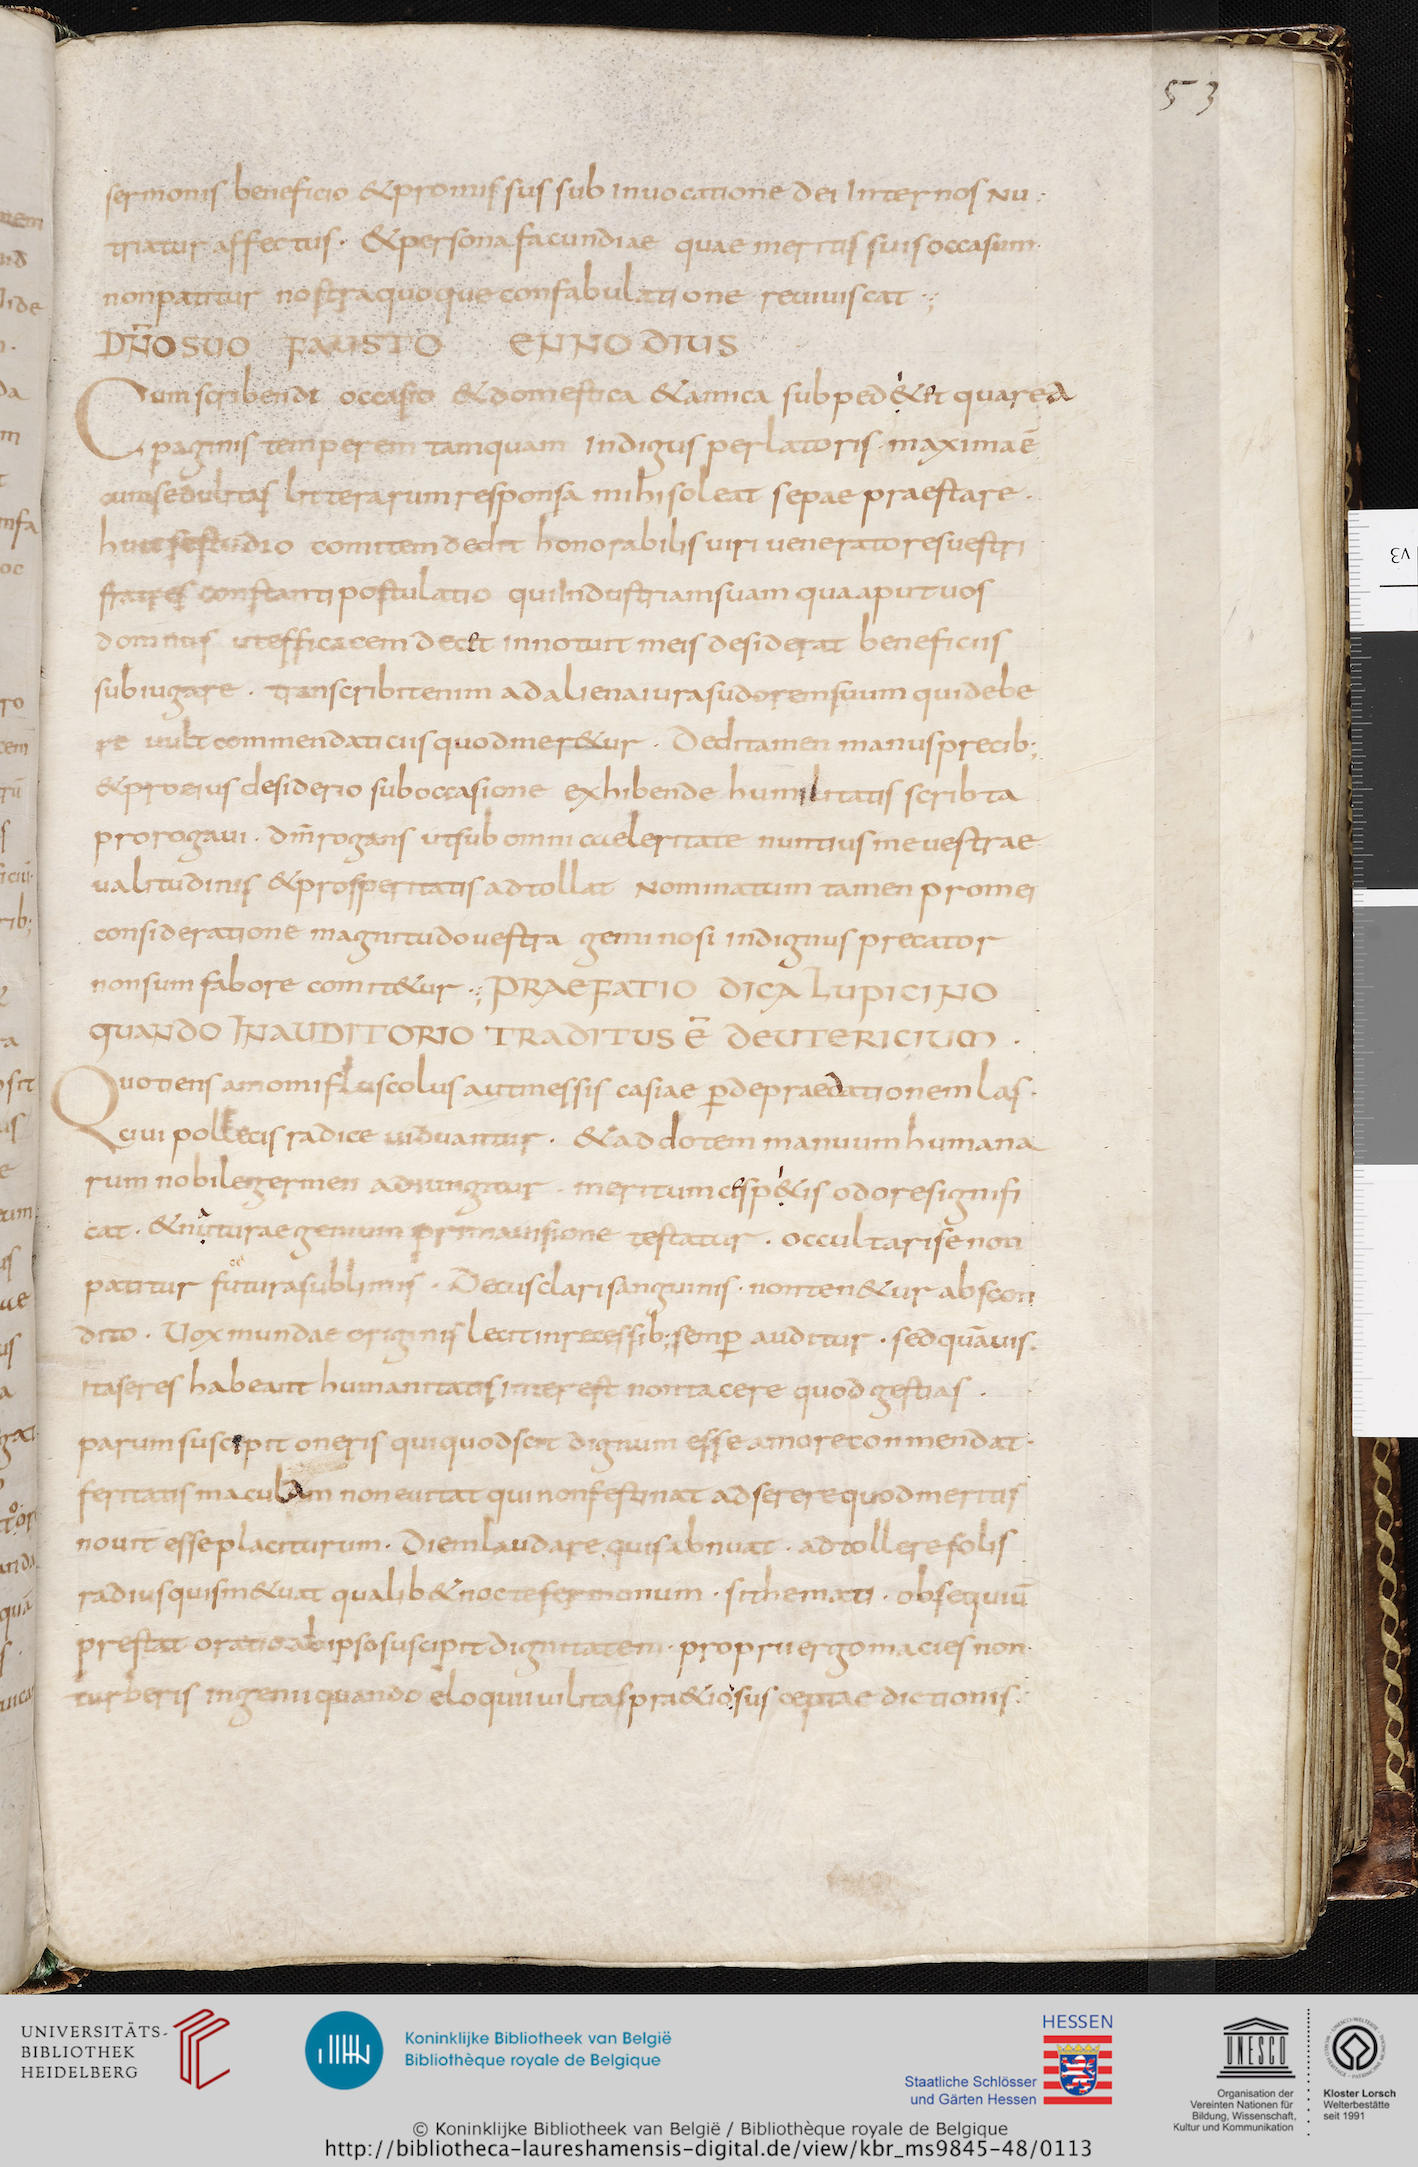 53
sermonis beneficio & promissus sub invocatione dei Inter nos Nu
triatur affectus. & persona facundiae quae meritis suis occasum.
non patitur nostra quoque confabulatione reviviscat
DN̄O SUO FAUSTO ENNODIUS
Cum scribendi occasio & domestica & amica subped&it quare a
paginis temperem tamquam Indigus perlatoris. maximae
cum sedulitas litterarum responsa mihi soleat sepae praestare.
huic studio comitem dedit honorabilis viri veneratores vestri
fratres constanti postulatio qui Industriam suam qua aput vos
dominus ut efficacem decet innotuit meis desiderat beneficiis
subiugare. transcribit enim ad aliena iura sudorem suum qui debe
re vult commendaticiis quod mer&ur. Dedi tamen manus precib;
& pro eius desiderio sub occasione exhibende humilitatis scribta
prorogavi. dm̄ rogans ut sub omni cueleritate nuntius me vestrae
valitudinis & prosperitatis adtollat Nominatum tamen pro mei
consideratione magnitudo vestra geminosi indignus precator
non sum fabore comit&ur. PRAEFATIO DICA LUPICINO
QUANDO IN AUDITORIO TRADITUS Ē DEUTERICIUM.
Quotiens amomi fluscolus aut messis casiae p̄ depraedationem las.
civi pollecis radice viduantur. & ad dotem manuum humana
rum nobile germen adiungitur. meritum cesp&is odore signifi
cat. & naturae genium prima visione testatur. occultari se non
patitur futura sublimis. Decus clari sanguinis. non ten&ur abscon
dito. Vox mundae originis lecit in recessib; semp̄ auditur. sed quāvis.
ita se res habeant humanitatis interest non tacere quod gestias.
parum suscipit oneris qui quod scit dignum esse amore conmendat.
feritatis maculam non evitat qui non festinat adserere quod meritis
novit esse placiturum. Diem laudare quis abnuat. adtollere solis
radius quis m&uat qualib& nocte sermonum. sithemati. obsequiū
prestat oratio ab ipso suscipit dignitatem. proprii ergo macies non
turberis ingenii quando eloquii vilitas pr&io susceptae dictionis.
v3
UNIVERSITÄTS-
BIBLIOTHEK
HEIDELBERG
Koninklijke Bibliotheek van België
Bibliothèque royale de Belgique
HESSEN
Staatliche Schlösser
und Gärten Hessen
UNESCO
Organisation der
Vereinten Nationen für
Bildung, Wissenschaft,
Kultur und Kommunikation
Kloster Lorsch
Welterbestätte
seit 1991
© Koninklijke Bibliotheek van België / Bibliothèque royale de Belgique
http://bibliotheca-laureshamensis-digital.de/view/kbr_ms9845-48/0113